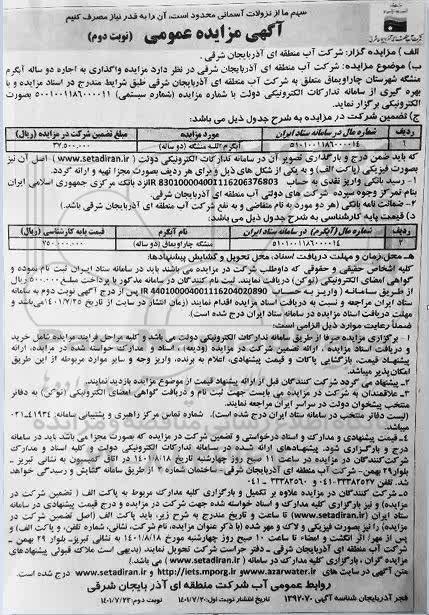 سهم ما از نزولات آسمانی محدود است، آن را به قدر نیاز مصرف کنیم
آگهی مزایده عمومی (نوبت دوم)
الف ) مزایده گزار: شرکت آب منطقه ای آذربایجان شرقی.
ب) موضوع مزایده: شرکت آب منطقه ای آذربایجان شرقی در نظر دارد مزایده واگذاری به اجاره دو ساله آبگرم
متنگه شهرستان چاراویماق متعلق به شرکت آب منطقه ای آذربایجان شرقی طبق شرایط مندرج در اسناد مزایده و با
بهره گیری از سامانه تدارکات الکترونیکی دولت با شماره مزایده (شماره سیستمی) بصورت
الکترونیکی برگزار نماید.
ج) تضمین شرکت در مزایده به شرح جدول ذیل می باشد:
ردیف شماره مال در سامانه ستاد ایران مورد مزایده مبلغ تضمین شرکت در مزایده (ریال)
۱ آبگرم متنگه (دو ساله) ۳۷.۵۰۰.۰۰۰
که باید ضمن درج و بارگذاری تصویر آن در سامانه تدارکات الکترونیکی دولت ( www.setadiran.ir ) اصل آن نیز
بصورت فیزیکی (پاکت الف) و به یکی از شکل های ذیل و برای هر ردیف بصورت مجزا تهیه و ارائه گردد.
۱- رسید بانکی واریز نقدی به حساب نزد بانک مرکزی جمهوری اسلامی ایران
بنام تمرکز وجوه سپرده شرکت های دولتی آب منطقه ای آذربایجان شرقی
۲- ضمانت نامه بانکی (هر دو مورد به نام متقاضی و به نفع شرکت آب منطقه ای آذربایجان شرقی باشد.)
د) قیمت پایه کارشناسی به شرح جدول ذیل می باشد:
ردیف شماره مال (آبگرم) در سامانه ستاد ایران نام آبگرم قیمت پایه کارشناسی (ریال)
متنگه چاراویماق (دو ساله) ۷۵۰.۰۰۰.۰۰۰
هـ- محل، زمان و مهلت دریافت اسناد، محل تحویل و گشایش پیشنهادها:
کلیه اشخاص حقیقی و حقوقی که داوطلب شرکت در مزایده می باشند باید در سامانه ستاد ایران ثبت نام نموده و
گواهی امضای الکترونیکی (توکن) دریافت نمایند. ثبت نام کنندگان در سامانه مذکور با پرداخت مبلغ ۵۰۰.۰۰۰ ریال
از طریق سامانه (واریز به حساب پس از درج آگهی نوبت دوم به سامانه
ستاد ایران مراجعه و نسبت به دریافت اسناد مزایده اقدام نمایند (زمان انتشار در سایت از تاریخ ۱۴۰۱/۷/۲۵ می باشد و
مهلت دریافت اسناد مزایده در سامانه ستاد ایران درج شده است).
ضمناً رعایت موارد ذیل الزامی است:
۱- برگزاری مزایده صرفا از طریق سامانه تدارکات الکترونیکی دولت می باشد و کلیه مراحل فرایند مزایده شامل خرید
و دریافت اسناد مزایده، ارائه تضمین شرکت در مزایده (ودیعه)، اسناد و مدارک خواسته شده در مزایده، ارائه
پیشنهاد قیمت، بازگشایی پاکات و قیمت پیشنهادی، اعلام به برنده، واریز وجه و سایر موارد مربوطه از این طریق
امکان پذیر میباشد.
۲- پیشنهاد می گردد شرکت کنندگان قبل از ارائه پیشنهاد قیمت از موضوع مزایده بازدید نمایند.
۳- علاقمندان به شرکت در مزایده می بایست جهت ثبت نام و دریافت گواهی امضای الکترونیکی (توکن) به دفاتر
منتخب پیشخوان دولت در سراسر ایران مراجعه نمایند.
(لیست دفاتر منتخب در سامانه ستاد ایران درج شده است). شماره تماس مرکز راهبری و پشتیبانی سامانه: ۴۱۹۳۴-۰۲۱
۴- قیمت پیشنهادی و مدارک و اسناد درخواستی و تضمین شرکت در مزایده که بصورت مجزا می باشد باید در سامانه
درج و بارگذاری شود. پیشنهادهای ارائه شده در سامانه تدارکات الکترونیکی دولت و کلیه اسناد و مدارک
شرکت کنندگان در مزایده در ساعت ۱۱ صبح روز چهارشنبه تاریخ ۱۴۰۱/۸/۱۸ در اتاق کمیسیون به نشانی تبریز-
بلوار ۲۹ بهمن- شرکت آب منطقه ای آذربایجان شرقی- ساختمان شماره ۲ از طریق سامانه گشایش و رسیدگی خواهد
شد. تلفن
۵- شرکت کنندگان در مزایده علاوه بر تکمیل و بارگزاری کلیه مدارک مربوط به پاکت الف ( تضمین شرکت در
مزایده) و نیز بارگزاری کلیه مدارک و اسناد خواسته شده جهت شرکت در مزایده و درج قیمت پیشنهادی در سامانه
ستاد ایران (www.setadiran.ir) تا ساعت و تاریخ مندرج به شرح زیر، باید پاکت الف (اصل تضمین شرکت در
مزایده) را نیز بصورت فیزیکی و لاک و مهر شده (با ذکر عنوان مزایده، نام شرکت، نشانی، شماره تلفن، و پاکت الف) و
پس از مهر/ اثر انگشت و امضاء تا ساعت ۱۰ صبح روز چهارشنبه مورخ ۱۴۰۱/۸/۱۸ به نشانی تبریز- بلوار ۲۹ بهمن -
شرکت آب منطقه ای آذربایجان شرقی - دفتر حراست شرکت تحویل نمایند (بدیهی است ملاک قبولی پیشنهادهای
ستاد ایران، بارگزاری کامل مدارک در سامانه www.setadiran.ir می باشد.)
متن آگهی در سایت های www.azarwater.ir و http://iets.mporg.ir و www.setadiran.ir درج شده است.
روابط عمومی آب شرکت منطقه ای آذر بایجان شرقی
فجر آذربایجان شناسه آگهی ۱۳۹۲۰۷۰ تاریخ انتشار نوبت اول: ۱۴۰۱/۷/۲۰ نوبت دوم: ۱۴۰۱/۷/۲۳